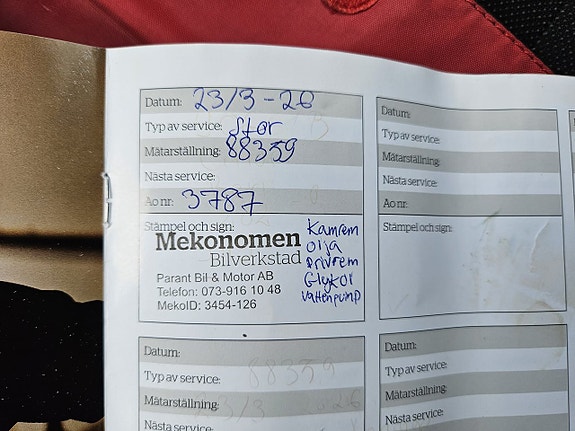 Datum: 23/3-26
Typ av service: Stor
Mätarställning: 88359
Nästa service:
Ao nr: 3787
Stämpel och sign:
Mekonomen
Bilverkstad
Parant Bil & Motor AB
Telefon: 073-916 10 48
MekoID: 3454-126
Kamrem
Olja
Drivrem
Glykol
Vattenpump
Datum:
Typ av service:
Mätarställning:
Nästa service:
Ao nr:
Stämpel och sign:
Datum:
Typ av service:
Mätarställning:
Nästa service:
Datum:
Typ av service:
Mätarställning:
Nästa service: